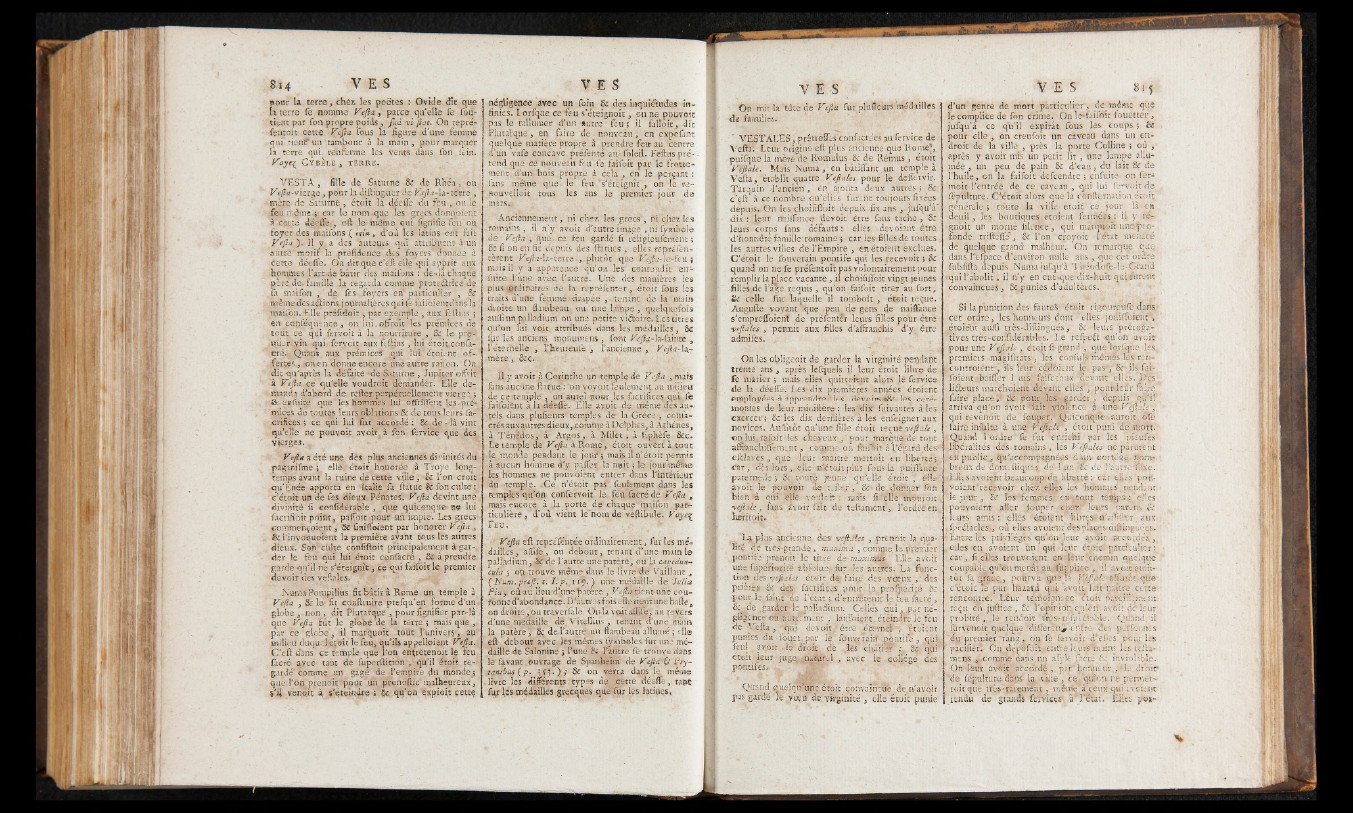 814 VES
pour la terre, chez les poëtes : Ovide dit que
la terre se nomme Vesta, parce qu'elle se sou-
tient par son propre poids, suâ vi stat. On repré-
sentoit cette Vesta sous la figure d'une femme
qui tient un tambour à la main, pour marquer
la terre qui renferme les vents dans son sein.
Voyez CYBÈLE, TERRE.
VESTA, fille de Saturne & de Rhéa, ou
Vesta-vierge, pour la distinguer de Vesta-la-terre,
mère de Saturne, étoit la déesse du feu, ou le
feu même ; car le nom que les grecs donnoient
à cette déesse, est le même qui signifie feu ou
foyer des maisons ( d'où les latins ont fait
Vesta ). Il y a des auteurs qui attribuent à un
autre motif la présidence des foyers donnée à
cette déesse. On dit que c'est elle qui apprit aux
hommes l'art de bâtir des maisons : de-là chaque
père de famille la regarda comme protectrice de
sa maison, de ses foyers en particulier, &
même des actions journalières qui se faisoient dans la
maison. Elle présidoit, par exemple, aux festins ;
en conséquence, on lui offroit les prémices de
tout ce qui servoit à la nourriture, & le pre-
mier vin qui servoit aux festins, lui étoit consa-
cré. Quant aux prémices qui lui étoient of-
fertes, on en donne encore une autre raison. On
dit qu'après la défaite de Saturne, Jupiter offrit
à Vesta ce qu'elle voudroit demander. Elle de-
manda d'abord de rester perpétuellement vierge ;
& ensuite que les hommes lui offrissent les pré-
mices de toutes leurs oblations & de tous leurs sa-
crifices ; ce qui lui fut accordé : & de-là vint
qu'elle ne pouvoit avoir à son service que des
vierges.
Vesta a été une des plus anciennes divinités du
paganisme ; elle étoit honorée à Troye long-
temps avant la ruine de cette ville, & l'on croit
qu'Enée apporta en Italie sa statue & son culte :
c'étoit un de ses dieux Pénates. Vesta devint une
divinité si considérable, que quiconque ne lui
sacrifioit point, passoit pour un impie. Les grecs
commençoient, & finissoient par honorer Vesta,
& l'invoquoient la première avant tous les autres
dieux. Son culte consistoit principalement à gar-
der le feu qui lui étoit consacré, & à prendre
garde qu'il ne s'éteignît, ce qui faisoit le premier
devoir des vestales.
Numa Pompilius fit bâtir à Rome un temple à
Vesta, & le fit construire presqu'en forme d'un
globe, non, dit Plutarque, pour signifier par-là
que Vesta fût le globe de la terre ; mais que,
par ce globe, il marquoit tout l'univers, au
milieu duquel étoit le feu, qu'ils appelloient Vesta.
C'est dans ce temple que l'on entretenoit le feu
sacré avec tant de superstition, qu'il étoit re-
gardé comme un gage de l'empire du monde ;
que l'on prenoit pour un pronostic malheureux,
s'il venoit à s'éteindre : & qu'on expioit cette
VES
négligence avec un soin & des inquiétudes in-
finies. Lorsque ce feu s'éteignoit, on ne pouvoit
pas le rallumer d'un autre feu : il falloit, dit
Plutarque, en faire de nouveau, en exposant
quelque matière propre à prendre feu au centre
d'un vase concave présenté au soleil. Festus pré-
tend que ce nouveau feu se faisoit par le frotte-
ment d'un bois propre à cela, en le perçant :
sans même que le feu s'éteignît, on le re-
nouvelloit tous les ans le premier jour de
mars.
Anciennement, ni chez les grecs, ni chez les
romains, il n'y avoit d'autre image, ni symbole
de Vesta, que ce feu gardé si religieusement ;
& si on en fit depuis des statues, elles représen-
tèrent Vesta-la-terre, plutôt que Vesta-le-feu ;
mais il y a apparence qu'on les confondit en-
suite l'une avec l'autre. Une des manières les
plus ordinaires de la représenter, étoit sous les
traits d'une femme drapée, tenant de la main
droite un flambeau ou une lampe, quelquefois
aussi un palladium ou une petite victoire. Les titres
qu'on lui voit attribués dans les médailles, &
sur les anciens monumens, sont Vesta-la-sainte,
l'éternelle, l'heureuse, l'ancienne, Vesta-la-
mère, &c.
Il y avoit à Corinthe un temple de Vesta, mais
sans aucune statue : on voyoit seulement au milieu
de ce temple, un autel pour les sacrifices qui se
faisoient à la déesse. Elle avoit de même des au-
tels dans plusieurs temples de la Grèce, consa-
crés aux autres dieux, comme à Delphes, à Athènes,
à Ténédos, à Argos, à Milet, à Ephèse &c.
Le temple de Vesta à Rome, étoit ouvert à tout
le monde pendant le jour ; mais il n'étoit permis
à aucun homme d'y passer la nuit : le jour même
les hommes ne pouvoient entrer dans l'intérieur
du temple. Ce n'étoit pas seulement dans les
temples qu'on conservoit le feu sacré de Vesta,
mais encore à la porte de chaque maison par-
ticulière, d'où vient le nom de vestibule. Voyez
FEU.
Vesta est représentée ordinairement, sur les mé-
dailles, assise, ou debout, tenant d'une main le
palladium, & de l'autre une patère, ou la capedun-
cula ; on trouve même dans le livre de Vaillant,
( Num. præst. t. I. p. ) une médaille de Julia
Pia, où au lieu d'une patère, Vesta tient une cor-
ne d'abondance. D'autres fois elle tient une haste,
ou droite, ou traversale. On la voit assise, au revers
d'une médaille de Vitellius, tenant d'une main
la patère, & de l'autre un flambeau allumé ; elle
est debout avec les mêmes symboles sur une mé-
daille de Salonine ; l'une & l'autre se trouve dans
le savant ouvrage de Spanheim de Vestâ & Pry-
tanibus ( p. ) ; & on verra dans le même
livre les différents types de cette déesse, tant
sur les médailles grecques que sur les latines.
VES
On mit la tête de Vesta sur plusieurs médailles
de familles.
VESTALES, prêtresses consacrées au service de
Vesta. Leur origine est plus ancienne que Rome,
puisque la mère de Romulus & de Rémus, étoit
Vestale. Mais Numa, en bâtissant un temple à
Vesta, établit quatre Vestales pour le desservir.
Tarquin l'ancien, en ajouta deux autres ; &
c'est à ce nombre qu'elles furent toujours fixées
depuis. On les choisissoit depuis six ans, jusqu'à
dix : leur naissance devoit être sans tache, &
leurs corps sans défauts : elles devoient être
d'honnête famille romaine ; car les filles de toutes
les autres villes de l'Empire, en étoient exclues.
C'étoit le souverain pontife qui les recevoit ; &
quand on ne se présentoit pas volontairement pour
remplir la place vacante, il choisissoit vingt jeunes
filles de l'âge requis, qu'on faisoit tirer au sort,
& celle sur laquelle il tomboit, étoit reçue.
Auguste voyant que peu de gens de naissance
s'empressoient de présenter leurs filles pour être
vestales, permit aux filles d'affranchis d'y être
admises.
On les obligeoit de garder la virginité pendant
trente ans, après lesquels il leur étoit libre de
se marier ; mais elles quittoient alors le service
de la déesse. Les dix premières années étoient
employées à apprendre les devoirs & les céré-
monies de leur ministère : les dix suivantes à les
exercer ; & les dix dernières à les enseigner aux
novices. Aussitôt qu'une fille étoit reçue vestale,
on lui rasoit les cheveux, pour marque de tout
affranchissement, comme on faisoit à l'égard des
esclaves, que leur maître mettoit en liberté ;
car, dès lors, elle n'étoit plus sous la puissance
paternelle ; & toute jeune qu'elle étoit, elle
avoit le pouvoir de tester, & de donner son
bien à qui elle vouloit : mais si elle mouroit
vestale, sans avoir fait de testament, l'ordre en
héritoit.
La plus ancienne des vestales, prenoit la qua-
lité de très-grande, maxima, comme le premier
pontife prenoit le titre de maximus. Elle avoit
une supériorité absolue sur les autres. La fonc-
tion des vestales étoit de faire des vœux, des
prières & des sacrifices pour la prospérité &
pour le salut de l'état ; d'entretenir le feu sacré,
& de garder le palladium. Celles qui, par né-
gligence ou autrement, laissoient éteindre le feu
de Vesta, qui devoit être éternel, étoient
punies du fouet par le souverain pontife, qui
seul avoit le droit de les châtier ; & qui
étoit leur juge naturel, avec le collége des
pontifes.
Quand quelqu'une étoit convaincue de n'avoir
pas gardé le vœu de virginité, elle étoit punie
VES 815
d'un genre de mort particulier, de même que
le complice de son crime. On le faisoit fouetter,
jusqu'à ce qu'il expirât sous les coups ; &
pour elle, on creusoit un caveau dans un en-
droit de la ville, près la porte Colline ; où,
après y avoir mis un petit lit, une lampe allu-
mée, un peu de pain & d'eau, du lait & de
l'huile, on la faisoit descendre ; ensuite on fer-
moit l'entrée de ce caveau, qui lui servoit de
sépulture. C'étoit alors que la consternation étoit
générale ; toute la ville étoit ce jour là en
deuil, les boutiques étoient fermées : il y ré-
gnoit un morne silence, qui marquoit une pro-
fonde tristesse, & l'on croyoit l'état menacé
de quelque grand malheur. On remarque que,
dans l'espace d'environ mille ans, que cet ordre
subsista depuis Numa jusqu'à Théodose-le-Grand
qui l'abolit, il n'y en eut que dix-huit qui furent
convaincues, & punies d'adultères.
Si la punition des fautes étoit rigoureuse dans
cet ordre, les honneurs dont elles jouissoient,
étoient aussi très-distingués, & leurs préroga-
tives très-considérables. Le respect qu'on avoit
pour une Vestale, étoit si grand, que lorsque les
premiers magistrats, les consuls mêmes les ren-
controient, ils leur cédoient le pas, & ils fai-
soient baisser leurs faisceaux devant elles. Des
licteurs marchoient devant elles, pour leur faire
faire place, & pour les garder, depuis qu'il
arriva qu'on avoit fait violence à une Vestale,
qui revenoit de souper. Quiconque auroit osé
faire insulte à une Vestale, étoit puni de mort.
Quand l'ordre se fut enrichi par les pieuses
libéralités des romains, les Vestales ne parurent
en public, qu'accompagnées d'un cortége nom-
breux de domestiques de l'un & de l'autre sexe.
Elles avoient beaucoup de liberté : car elles pou-
voient recevoir chez elles les hommes pendant
le jour, & les femmes en tout temps : elles
pouvoient aller souper chez leurs parens &
leurs amis : elles étoient libres d'assister aux
spectacles, où elles avoient des places distinguées.
Entre les priviléges qu'on leur avoit accordés,
elles en avoient un qui leur étoit particulier ;
car, si elles trouvoient en leur chemin quelque
coupable qu'on menât au supplice, il avoit aussi-
tôt sa grace, pourvu que la Vestale assurât que
c'étoit le pur hazard qui avoit fait naître cette
rencontre. Leur témoignage étoit
reçu en justice, & l'opinion qu'on avoit de leur
probité, le rendoit très-respectable. Quand il
survenoit quelque différent entre des personnes
du premier rang, on se servoit d'elles pour les
pacifier. On déposoit entre leurs mains les testa-
mens, comme dans un asyle sacré & inviolable.
On leur avoit accordé, par honneur, le droit
de sépulture dans la ville, ce qu'on ne permet-
toit que très-rarement, même à ceux qui avoient
rendu de grands services à l'état. Elles pos-